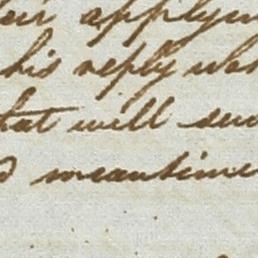 applyin
his reply was
that will
meantime